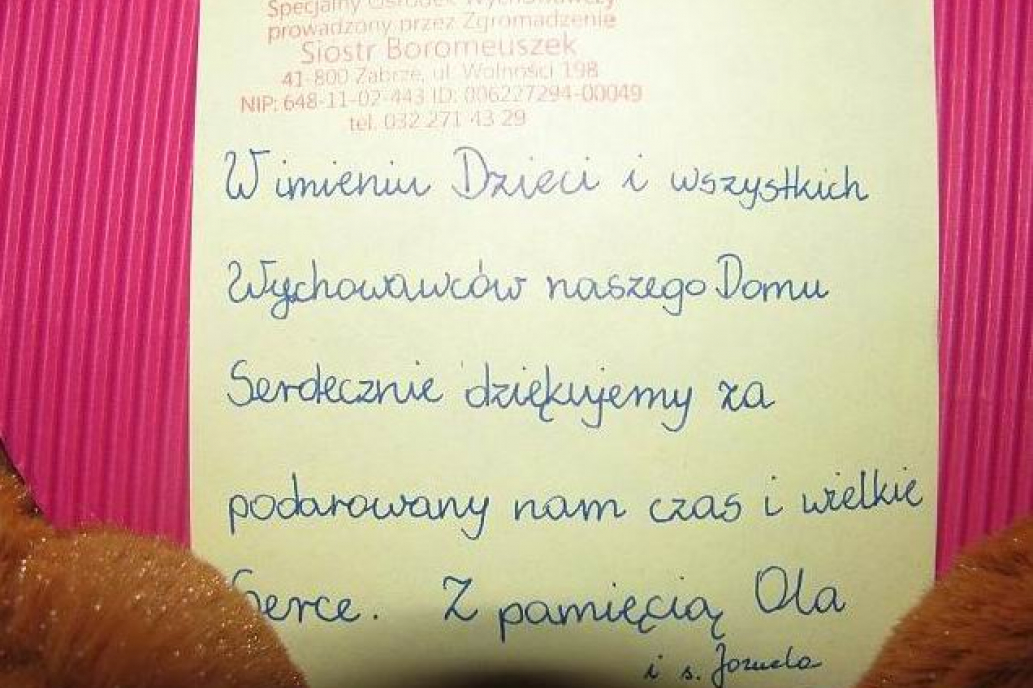 Specjalny Ośrodek Wychowawczy
prowadzony przez Zgromadzenie
Siostr Boromeuszek
41-800 Zabrze, ul. Wolności 198
NIP: 648-11-02-443 ID: 006227294-00049
tel. 032 271 43 29
W imieniu Dzieci i wszystkich
Wychowawców naszego Domu
Serdecznie dziękujemy za
podarowany nam czas i wielkie
Serce. Z pamięcią Ola
i s.